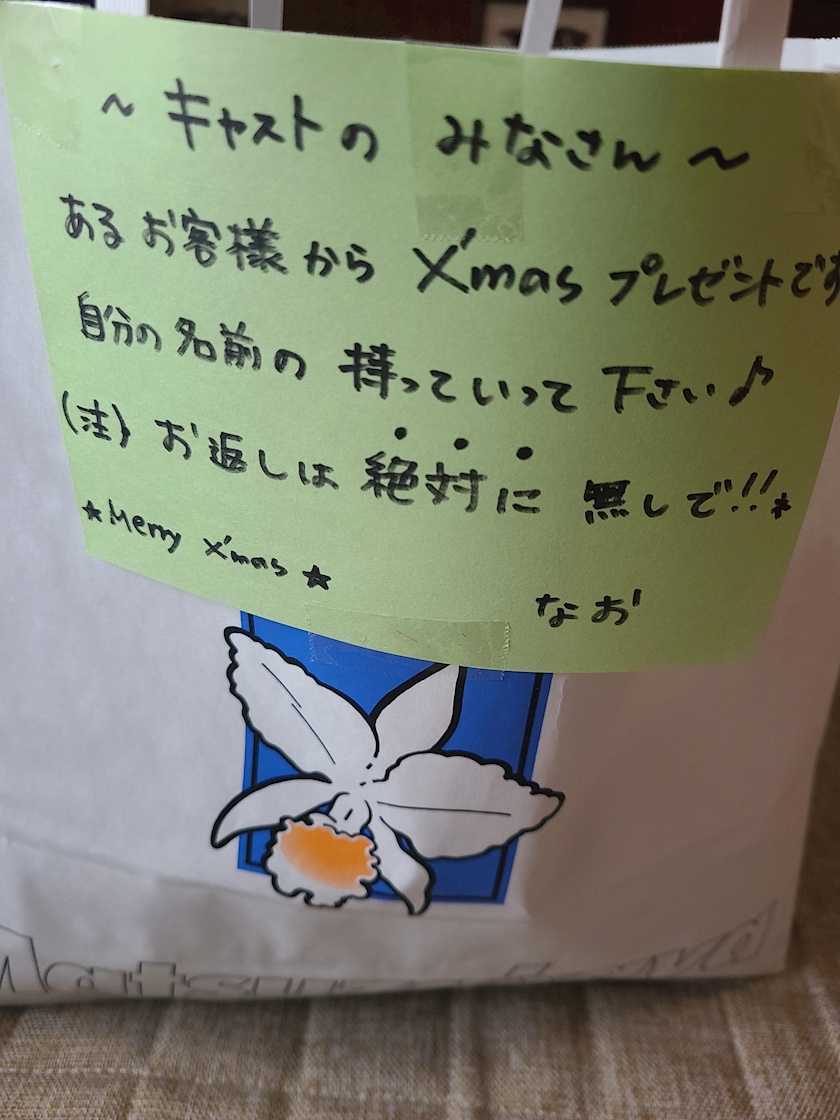 ～キャストの みなさん～
あるお客様から X'mas プレゼントです
自分の名前の 持っていって 下さい♪
(注) お返しは 絶対に 無しで!!*
★Merry X'mas★
なお